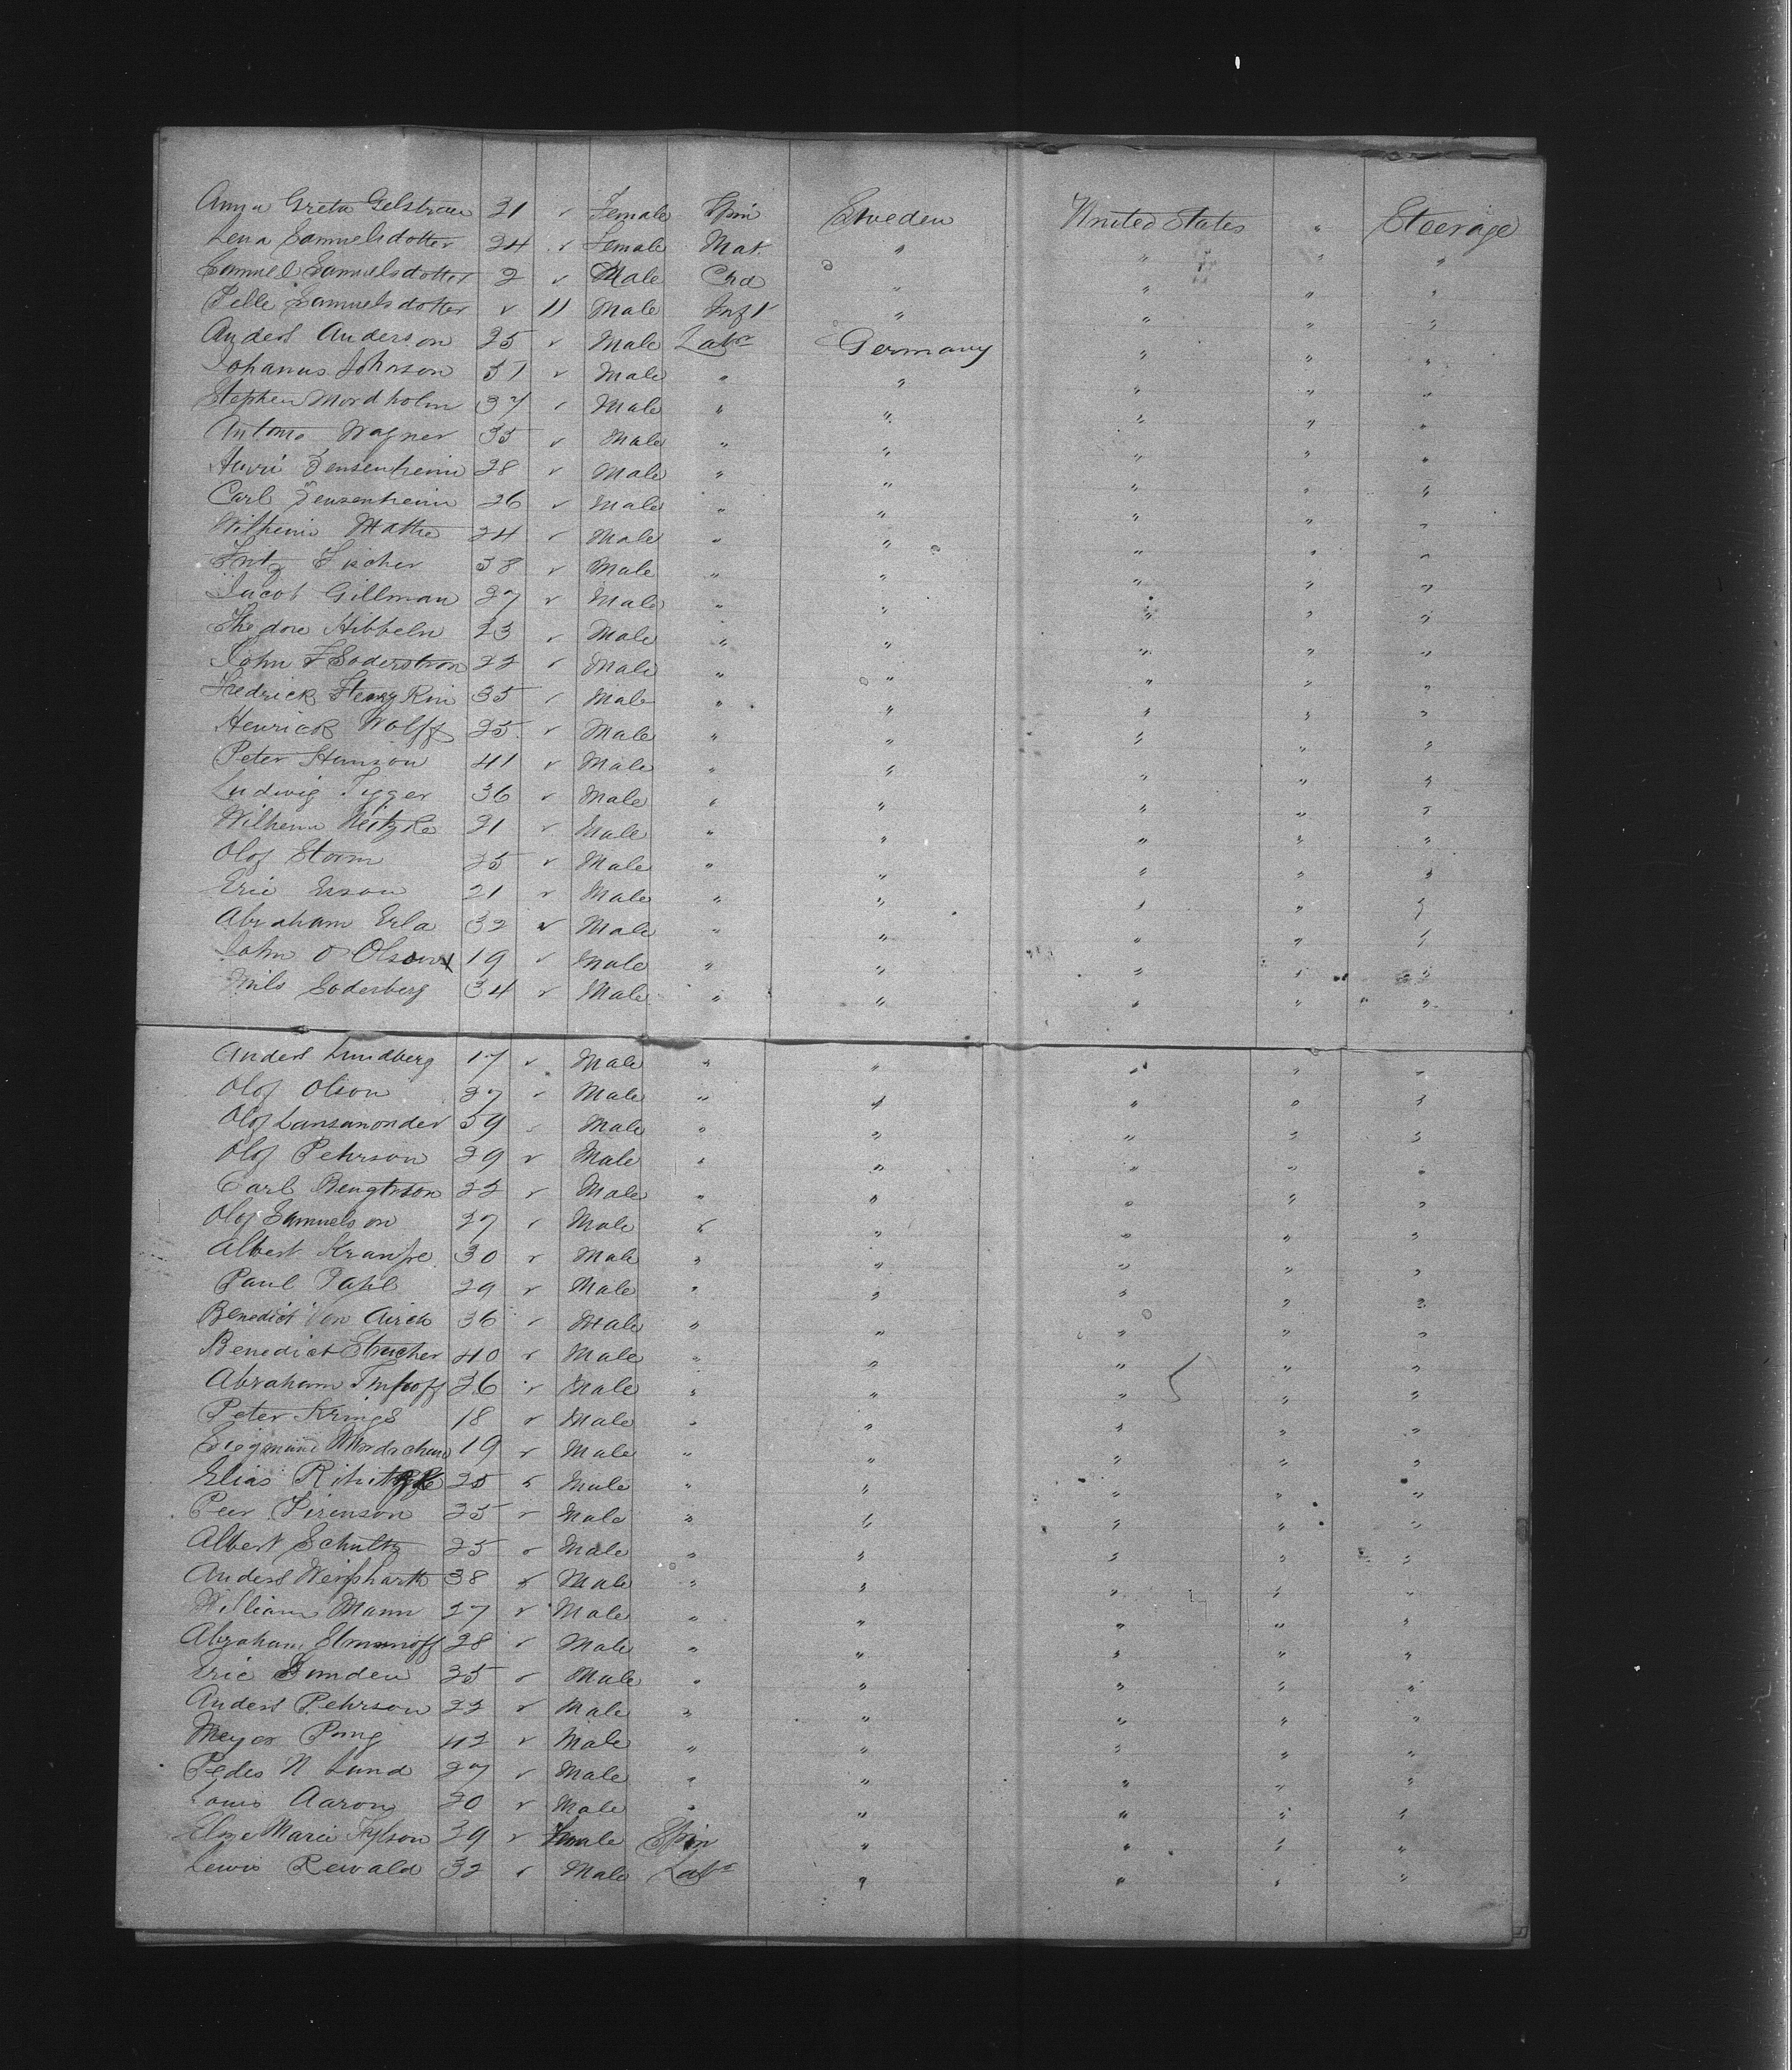 Anna Greta Gelstrau 31 " Female Spin Sweden United States " Steerage
Lena Samuelsdotter 24 " Female Mat. " " " "
Samuel Samuelsdotter 2 " Male Chd " " " "
Pelle Samuelsdotter " 11 Male Inft " " " "
Anders Anderson 25 " Male Labr Germany " " "
Johanus Johnson 51 " Male " " " " "
Stephen Nordholm 37 " Male " " " " "
Antono Wagner 35 " Male " " " " "
Henri Zensenheim 28 " Male " " " " "
Carl Zensenheim 26 " Male " " " " "
Wilheim Mathe 24 " Male " " " " "
Fritz Fischer 38 " Male " " " " "
Jacob Gillman 27 " Male " " " " "
Thedore Hibbeln 23 " Male " " " " "
John F Soderstrom 22 " Male " " " " "
Fredrick 35 " Male " " " " "
Henrick Wolff 25 " Male " " " " "
Peter Hanson 41 " Male " " " " "
Ludwig Tigger 36 " Male " " " " "
Wilhelm Neitzke 21 " Male " " " " "
Olof Storm 25 " Male " " " " "
Eric Erson 21 " Male " " " " "
Abraham Erla 32 " Male " " " " "
John O Olson 19 " Male " " " " "
Nils Soderberg 34 " Male " " " " "
Anders Lundberg 17 " Male " " " " "
Olof Olson 27 " Male " " " " "
Olof Lansanonder 59 " Male " " " " "
Olof Pehrson 29 " Male " " " " "
Carl Bengtson 22 " Male " " " " "
Olof Samuelson 27 " Male " " " " "
Albert Kranpe 30 " Male " " " " "
Paul Pahl 29 " Male " " " " "
Benedict Von Airch 36 " Male " " " " "
Benedict Strucher 40 " Male " " " " "
Abraham Imhoff 26 " Male " " " " "
Peter Krings 18 " Male " " " " "
Siegmund 19 " Male " " " " "
Elias 25 " Male " " " " "
Peer Pirenson 25 " Male " " " " "
Albert Schultz 25 " Male " " " " "
Anders Weisharth 38 " Male " " " " "
William Mann 27 " Male " " " " "
Abraham 28 " Male " " " " "
Eric Linden 35 " Male " " " " "
Anders Pehrson 22 " Male " " " " "
Meyer Pung 42 " Male " " " " "
Peder N Lund 27 " Male " " " " "
Louis Aaron 20 " Male " " " " "
Else Marie Fylson 39 " Female Spin " " " "
Lewis Rewald 32 " Male Labr " " " "